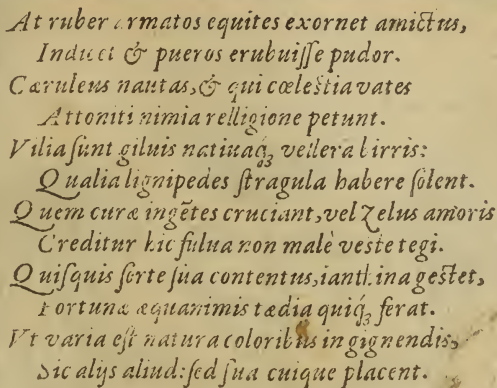 At ruber armatos equites exornet amictus,
Indicet & pueros erubuiſſe pudor.
Cæruleus nautas, & qui cœleſtia vates
Attoniti nimia relligione petunt.
Vilia ſunt giluis natiuaq́ꝫ vellera birris:
Qualia lignipedes ſtragula habere ſolent.
Quem curæ ingẽtes cruciant, vel Zelus amoris
Creditur hic fulua non malè veste tegi.
Quiſquis ſorte ſua contentus, ianthina geſtet,
Fortunæ æquanimis tædia quiq́ꝫ ferat.
Vt varia eſt natura coloribus in gignendis,
Sic alijs aliud: ſed ſua cuique placent.